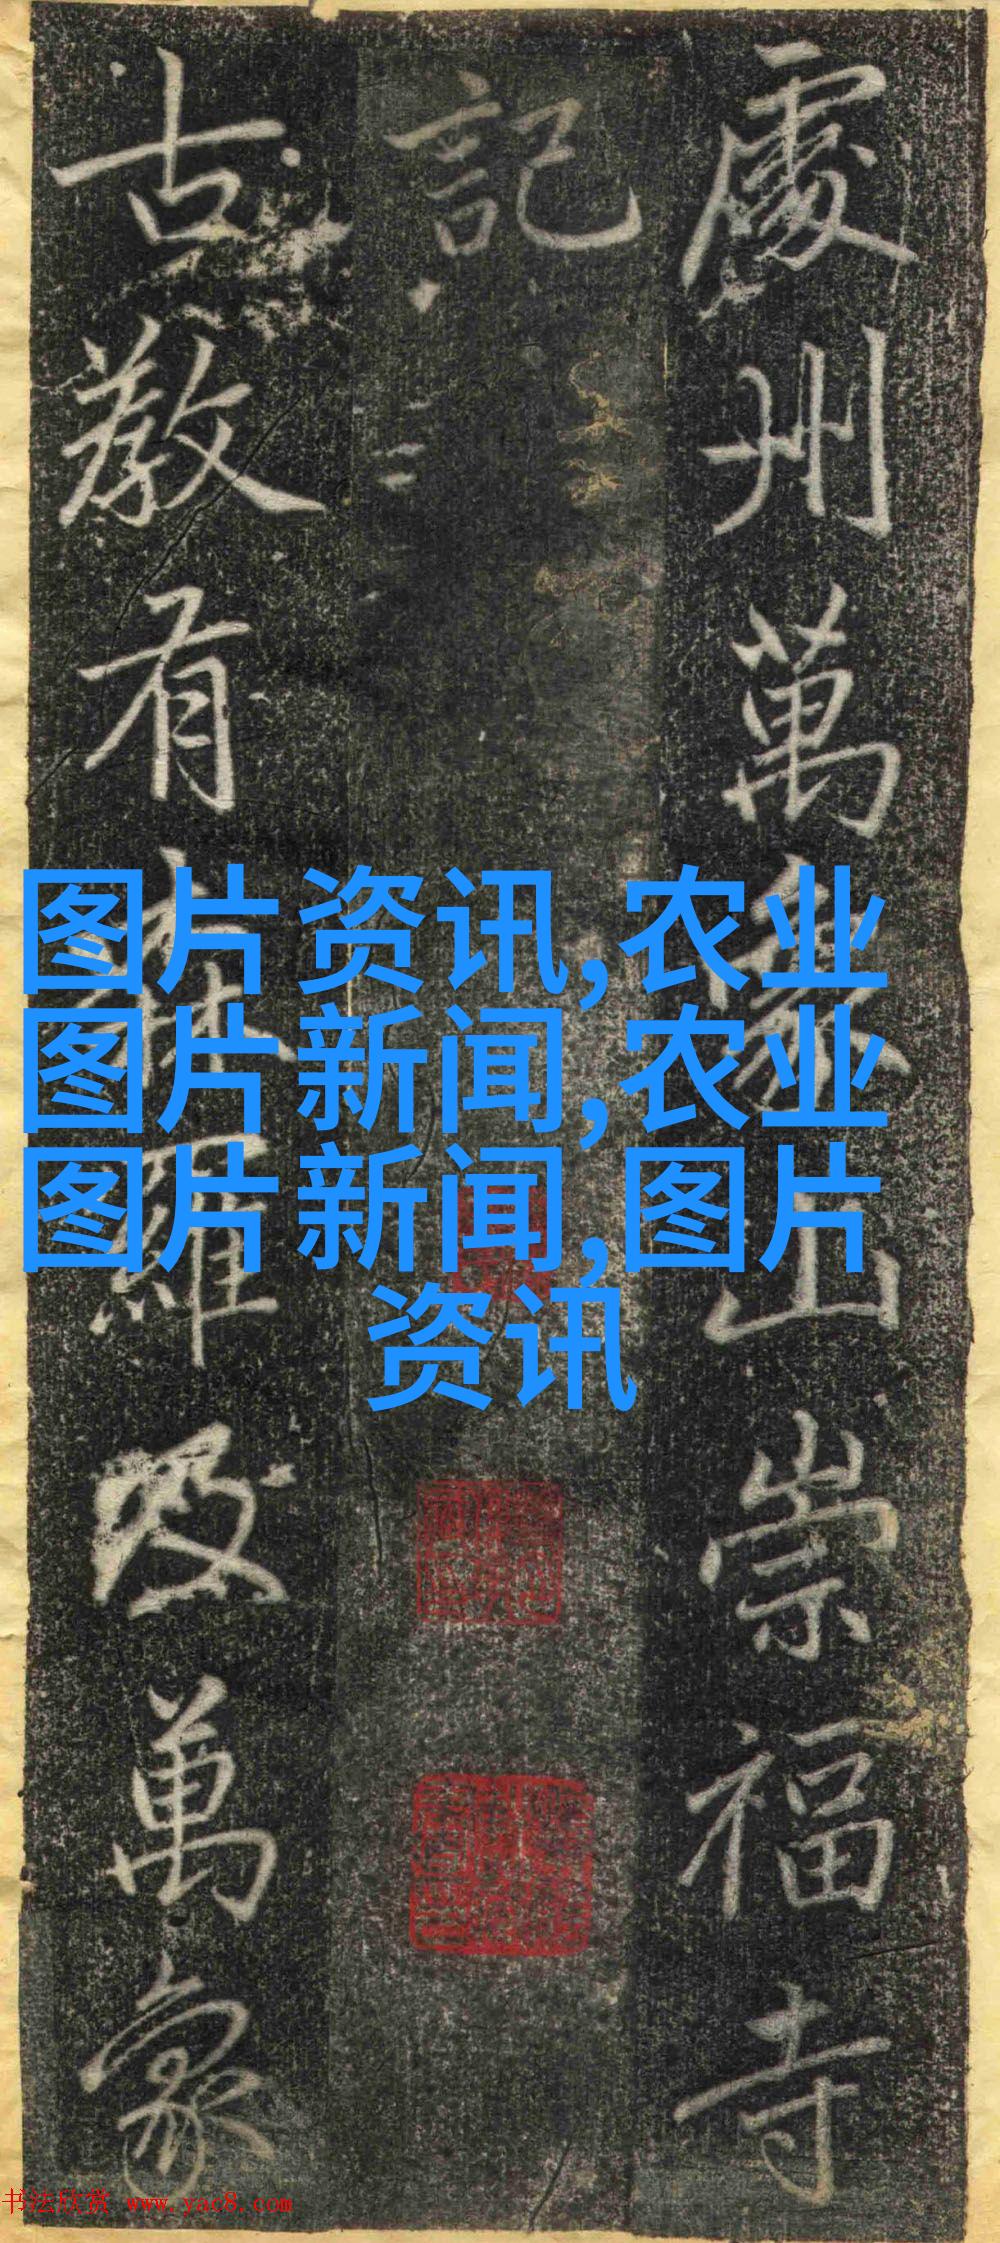 處州萬象山崇福寺
記
古教有森羅及萬象
图片资讯,农业
图片新闻,农业
图片新闻,图片
资讯
书法欣赏 www.yac8.com